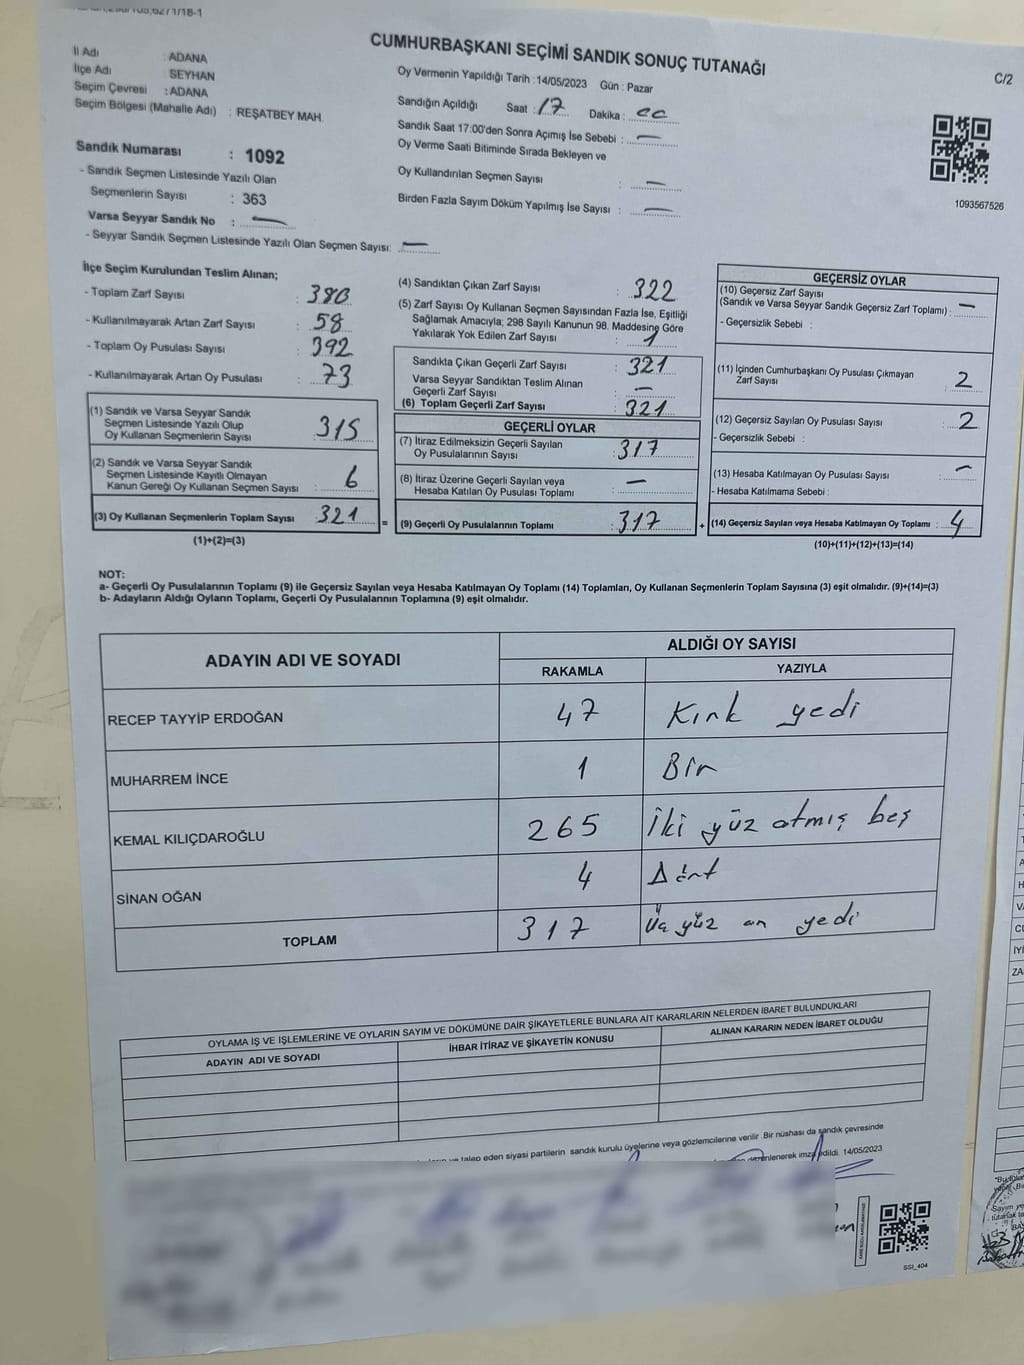 CUMHURBAŞKANI SEÇİMİ SANDIK SONUÇ TUTANAĞI
C/2
İl Adı : ADANA
İlçe Adı : SEYHAN
Seçim Çevresi : ADANA
Seçim Bölgesi (Mahalle Adı) : REŞATBEY MAH.
Sandık Numarası : 1092
- Sandık Seçmen Listesinde Yazılı Olan
Seçmenlerin Sayısı : 363
Varsa Seyyar Sandık No : —
- Seyyar Sandık Seçmen Listesinde Yazılı Olan Seçmen Sayısı: —
Oy Vermenin Yapıldığı Tarih : 14/05/2023 Gün : Pazar
Sandığın Açıldığı Saat : 17 Dakika :
Sandık Saat 17:00'den Sonra Açımış İse Sebebi : —
Oy Verme Saati Bitiminde Sırada Bekleyen ve
Oy Kullandırılan Seçmen Sayısı : —
Birden Fazla Sayım Döküm Yapılmış İse Sayısı : —
1093567526
İlçe Seçim Kurulundan Teslim Alınan;
- Toplam Zarf Sayısı : 380
- Kullanılmayarak Artan Zarf Sayısı : 58
- Toplam Oy Pusulası Sayısı : 392
- Kullanılmayarak Artan Oy Pusulası : 73
(1) Sandık ve Varsa Seyyar Sandık
Seçmen Listesinde Yazılı Olup
Oy Kullanan Seçmenlerin Sayısı : 315
(2) Sandık ve Varsa Seyyar Sandık
Seçmen Listesinde Kayıtlı Olmayan
Kanun Gereği Oy Kullanan Seçmen Sayısı : 6
(3) Oy Kullanan Seçmenlerin Toplam Sayısı : 321
(1)+(2)=(3)
(4) Sandıktan Çıkan Zarf Sayısı : 322
(5) Zarf Sayısı Oy Kullanan Seçmen Sayısından Fazla İse, Eşitliği
Sağlamak Amacıyla; 298 Sayılı Kanunun 98. Maddesine Göre
Yakılarak Yok Edilen Zarf Sayısı : 1
Sandıkta Çıkan Geçerli Zarf Sayısı : 321
Varsa Seyyar Sandıktan Teslim Alınan
Geçerli Zarf Sayısı : —
(6) Toplam Geçerli Zarf Sayısı : 321
GEÇERLİ OYLAR
(7) İtiraz Edilmeksizin Geçerli Sayılan
Oy Pusulalarının Sayısı : 317
(8) İtiraz Üzerine Geçerli Sayılan veya
Hesaba Katılan Oy Pusulası Toplamı : —
= (9) Geçerli Oy Pusulalarının Toplamı : 317
GEÇERSİZ OYLAR
(10) Geçersiz Zarf Sayısı
(Sandık ve Varsa Seyyar Sandık Geçersiz Zarf Toplamı) : —
- Geçersizlik Sebebi :
(11) İçinden Cumhurbaşkanı Oy Pusulası Çıkmayan
Zarf Sayısı : 2
(12) Geçersiz Sayılan Oy Pusulası Sayısı : 2
- Geçersizlik Sebebi :
(13) Hesaba Katılmayan Oy Pusulası Sayısı : —
- Hesaba Katılmama Sebebi :
+ (14) Geçersiz Sayılan veya Hesaba Katılmayan Oy Toplamı : 4
(10)+(11)+(12)+(13)=(14)
NOT:
a- Geçerli Oy Pusulalarının Toplamı (9) ile Geçersiz Sayılan veya Hesaba Katılmayan Oy Toplamı (14) Toplamları, Oy Kullanan Seçmenlerin Toplam Sayısına (3) eşit olmalıdır. (9)+(14)=(3)
b- Adayların Aldığı Oyların Toplamı, Geçerli Oy Pusulalarının Toplamına (9) eşit olmalıdır.
ADAYIN ADI VE SOYADI
ALDIĞI OY SAYISI
RAKAMLA YAZIYLA
RECEP TAYYİP ERDOĞAN 47 Kırk yedi
MUHARREM İNCE 1 Bir
KEMAL KILIÇDAROĞLU 265 İki yüz atmış beş
SİNAN OĞAN 4 Dört
TOPLAM 317 Üç yüz on yedi
OYLAMA İŞ VE İŞLEMLERİNE VE OYLARIN SAYIM VE DÖKÜMÜNE DAİR ŞİKAYETLERLE BUNLARA AİT KARARLARIN NELERDEN İBARET BULUNDUKLARI
ADAYIN ADI VE SOYADI İHBAR İTİRAZ VE ŞİKAYETİN KONUSU ALINAN KARARIN NEDEN İBARET OLDUĞU
talep eden siyasi partilerin sandık kurulu üyelerine veya gözlemcilerine verilir .Bir nüshası da sandık çevresinde
imza edildi. 14/05/2023
SSI_404